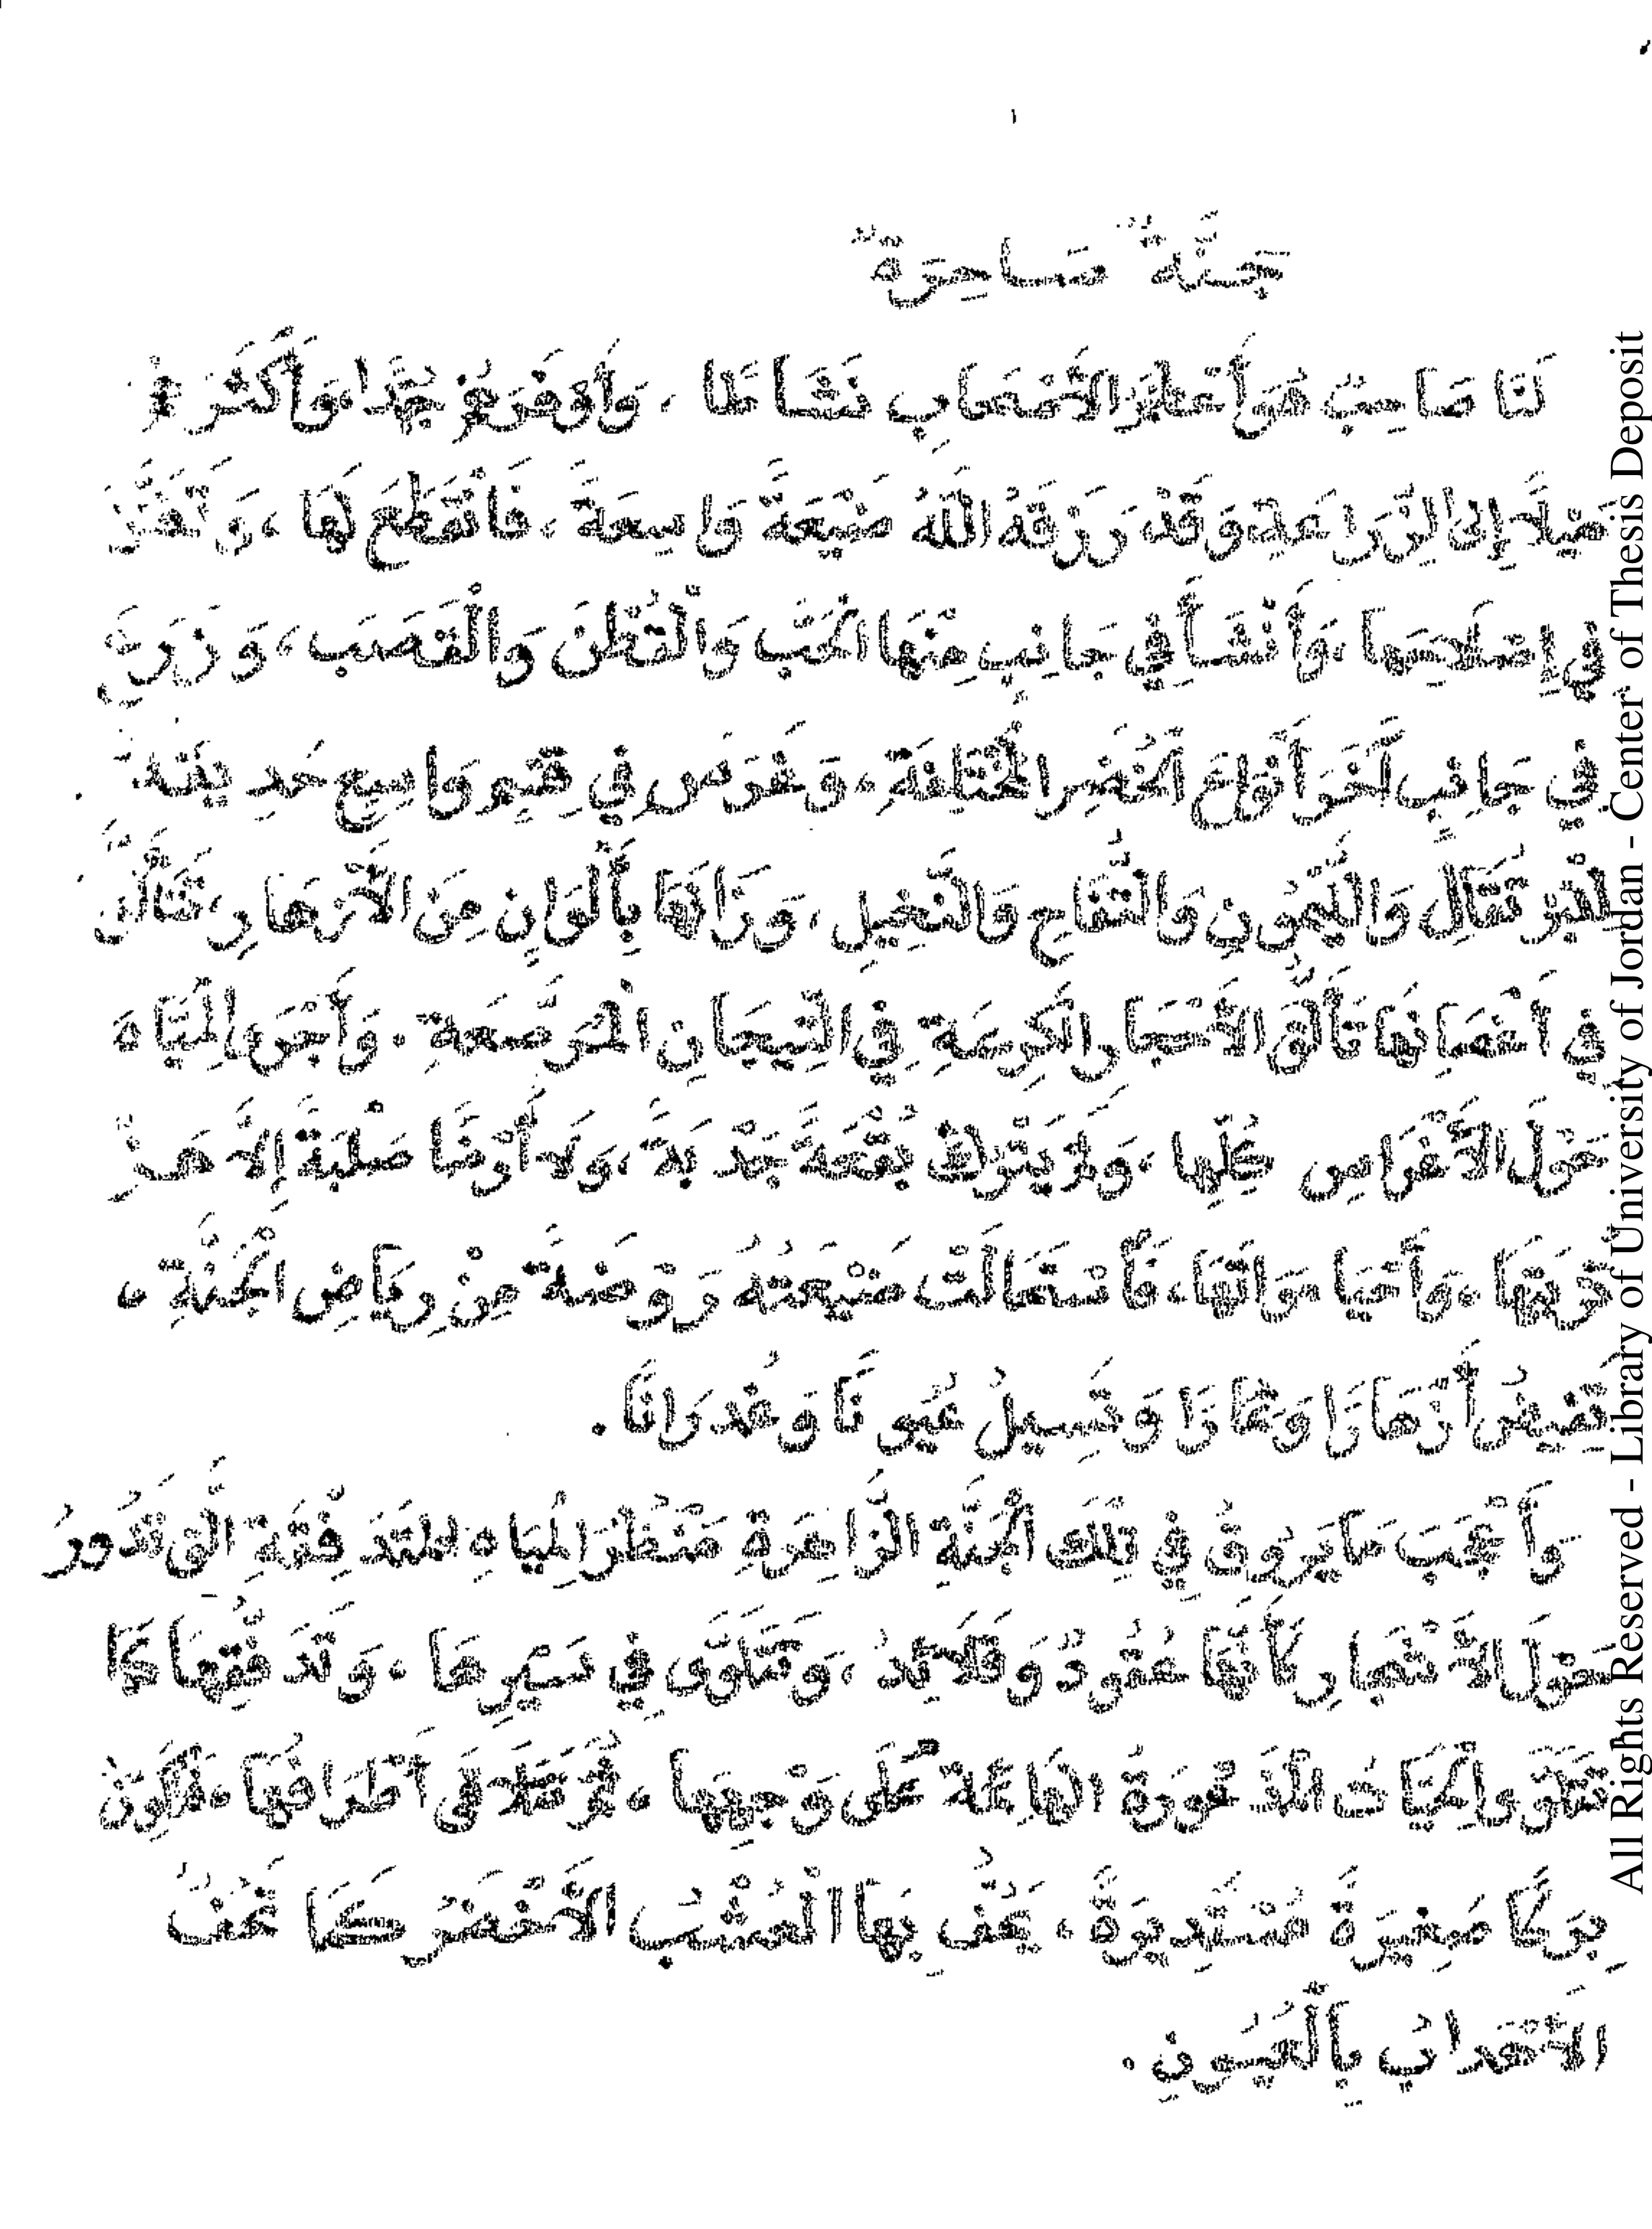 جَنَّةٌ سَاحِرَةٌ
لَنَا صَاحِبٌ هُوَ أَعْظَمُ الأَصْحَابِ نَشَاطًا ، وَأَوْفَرُهُمْ جِدًّا، وَأَكْثَرُهُمْ
مَيْلًا إِلَى الزِّرَاعَةِ وَقَدْ رَزَقَهُ اللَّهُ ضَيْعَةً وَاسِعَةً ، فَانْقَطَعَ لَهَا ، وَتَفَنَّنَ
فِي إِصْلَاحِهَا ، وَأَنْشَأَ فِي جَانِبٍ مِنْهَا الْحَبَّ وَالْقُطْنَ وَالْقَصَبَ ، وَزَرَعَ
فِي جَانِبٍ آخَرَ أَنْوَاعَ الْخُضَرِ الْمُخْتَلِفَةِ ، وَغَرَسَ فِي قِسْمٍ وَاسِعٍ حَدِيقَةً
لِلْبُرْتُقَالِ وَاللَّيْمُونِ وَالتُّفَّاحِ وَالنَّخِيلِ ، وَزَانَهَا بِأَلْوَانٍ مِنَ الأَزْهَارِ، تَتَأَلَّقُ
فِي أَغْصَانِهَا تَأَلُّقَ الأَحْجَارِ الْكَرِيمَةِ فِي التِّيجَانِ الْمُرَصَّعَةِ . وَأَجْرَى الْمِيَاهَ
حَوْلَ الأَغْرَاسِ كُلِّهَا ، وَلَمْ يَتْرُكْ بُقْعَةً جَدْبَةً ، وَلَا أَرْضًا صَلْبَةً إِلاَّ هَذَّبَ
تُرْبَتَهَا ، وَأَحْيَا مَوَاتَهَا، فَاسْتَحَالَتْ ضَيْعَتُهُ رَوْضَةً مِنْ رِيَاضِ الْجَنَّةِ ،
تَفِيضُ أَزْهَارًا وَثِمَارًا وَتَسِيلُ عُيُونًا وَغُدْرَانًا .
وَأَعْجَبَ مَا يَرُوقُ فِي تِلْكَ الْجَنَّةِ الزَّاهِرَةِ مَنْظَرُ الْمِيَاهِ الْمُتَدَفِّقَةِ الَّتِي تَدُورُ
حَوْلَ الأَشْجَارِ كَأَنَّهَا عُقُودٌ وَقَلَائِدُ ، وَتَتَلَوَّى فِي سَيْرِهَا ، وَتَدَفُّقِهَا كَمَا
تَتَلَوَّى الْحَيَّاتُ الْمَذْعُورَةُ الْهَائِمَةُ عَلَى وَجْهِهَا ، ثُمَّ تَتَلَاقَى أَطْرَافُهَا ، فَتُكَوِّنُ
بِرَكًا صَغِيرَةً مُسْتَدِيرَةً ، يَحُفُّ بِهَا الْعُشْبُ الأَخْضَرُ كَمَا تَحُفُّ
الأَهْدَابُ بِالْعُيُونِ .
All Rights Reserved - Library of University of Jordan - Center of Thesis Deposit